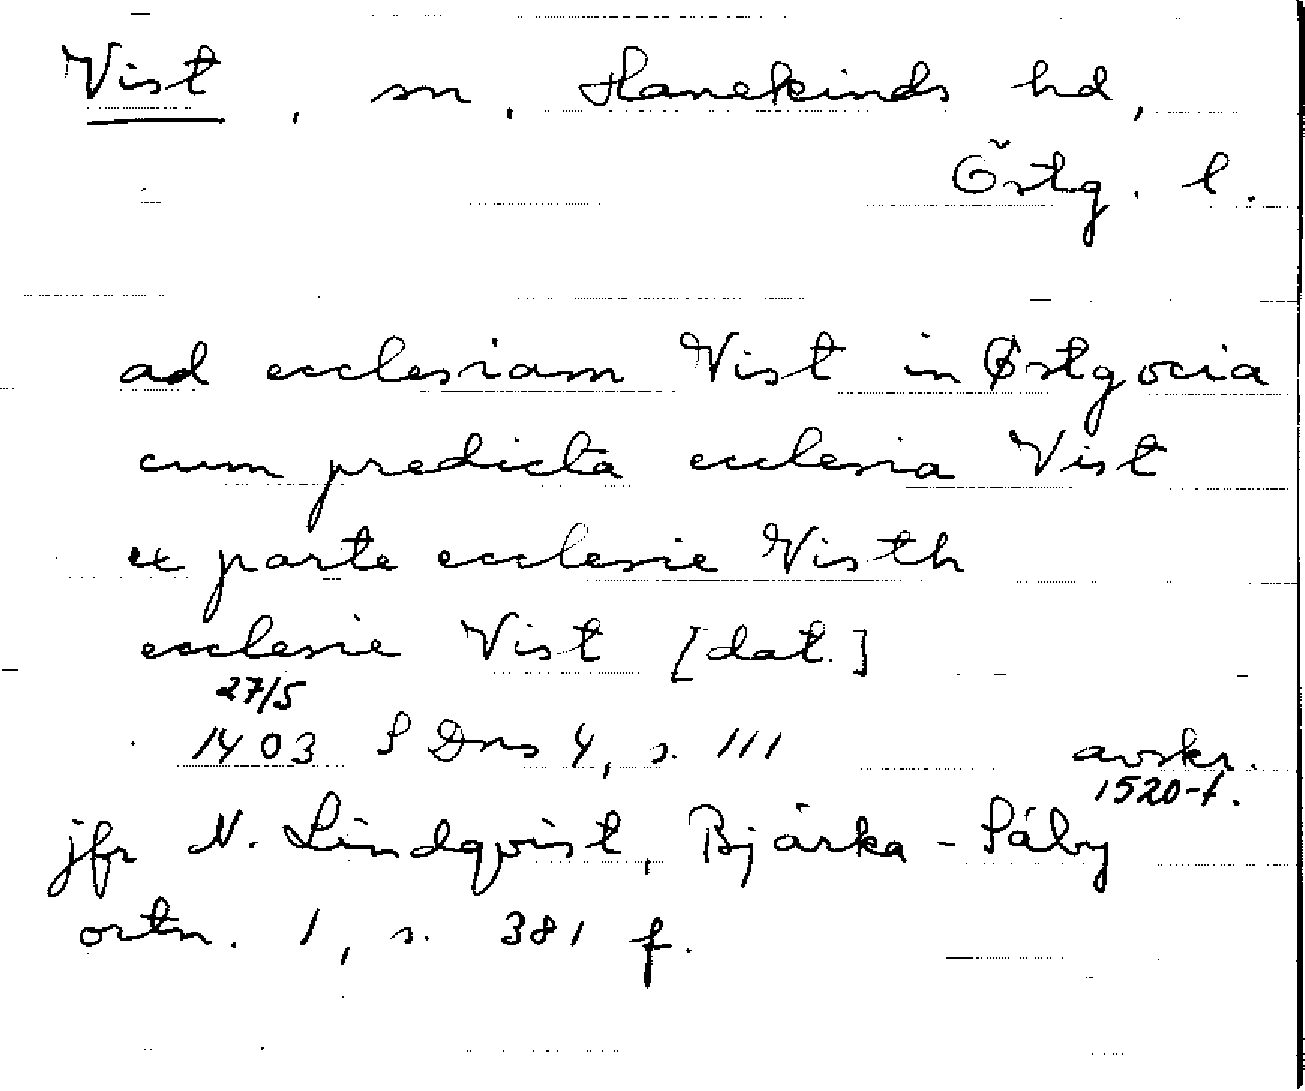 Vist, sn, Hanekinds hd,
Östg. l.
ad ecclesiam Vist in Østgocia
cum predicta ecclesia Vist
ex parte ecclesie Visth
ecclesie Vist [dat.]
27/5
1403 SDns 4, s. 111 avskr.
1520-t.
jfr N. Lindqvist, Bjärka-Säby
ortn. 1, s. 381 f.